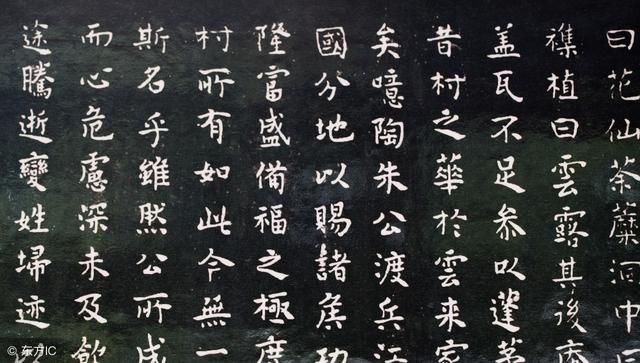 曰花仙荼蘪洞中
襍植曰雲露其後
蓋瓦不足叅以蓬茅
昔村之華於雲来
矣噫陶朱公渡兵江
國分地以賜諸矦功
隆富盛備福之極
村所有如此今無一
斯名乎雖然公所成
而心危慮深未及飲
途騰逝變姓埽迹
©东方IC